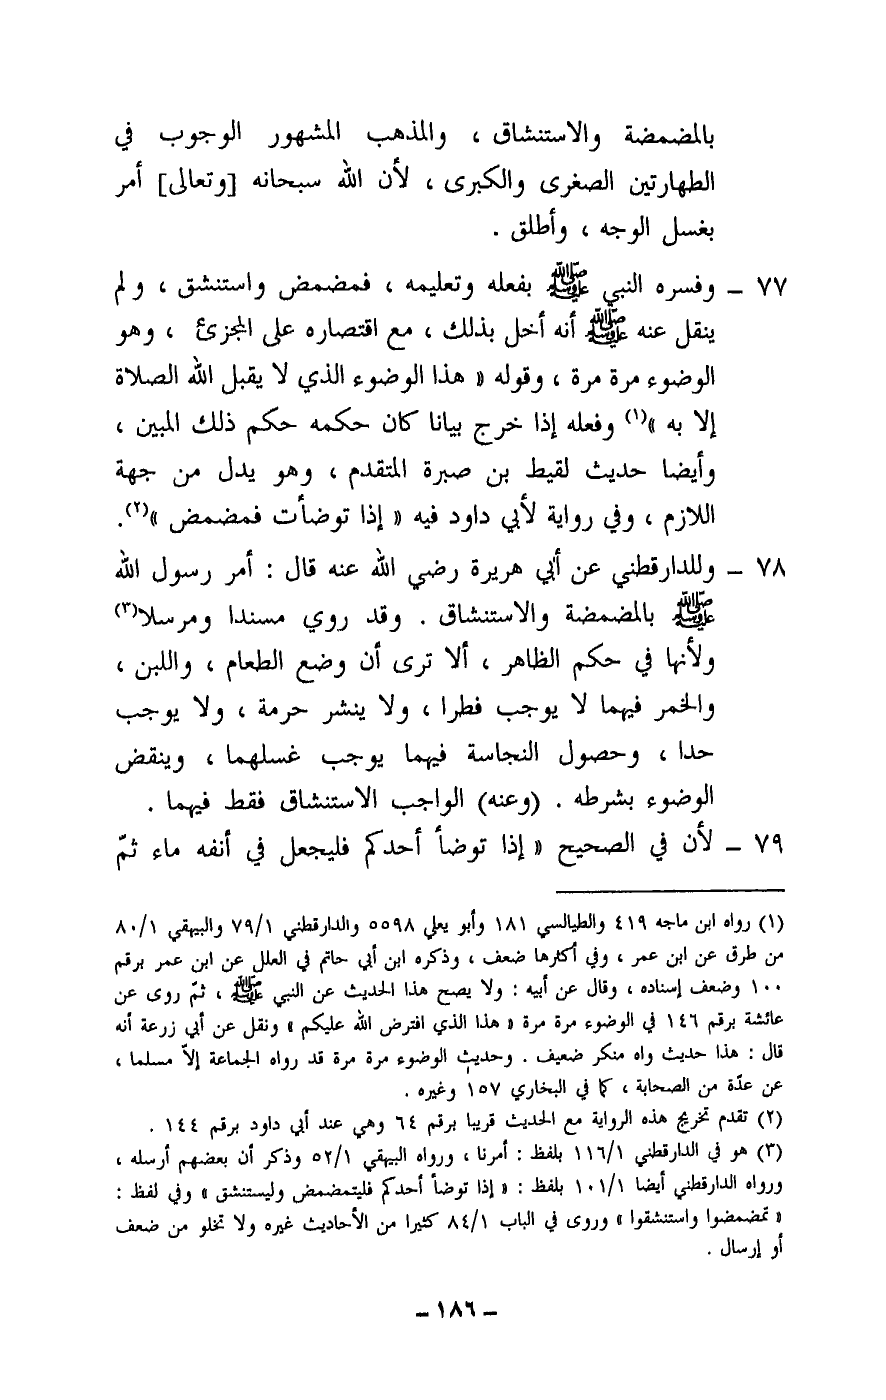 بالمضمضة والاستنشاق ، والمذهب المشهور الوجوب في
الطهارتين الصغرى والكبرى ، لأن الله سبحانه [وتعالى] أمر
بغسل الوجه ، وأطلق .
٧٧ ـ وفسره النبي ﷺ بفعله وتعليمه ، فمضمض واستنشق ، ولم
ينقل عنه ﷺ أنه أخل بذلك ، مع اقتصاره على المجزئ ، وهو
الوضوء مرة مرة ، وقوله « هذا الوضوء الذي لا يقبل الله الصلاة
إلا به »(١) وفعله إذا خرج بيانا كان حكمه حكم ذلك المبين ،
وأيضا حديث لقيط بن صبرة المتقدم ، وهو يدل من جهة
اللازم ، وفي رواية لأبي داود فيه « إذا توضأت فمضمض »(٢).
٧٨ ـ وللدارقطني عن أبي هريرة رضي الله عنه قال : أمر رسول الله
ﷺ بالمضمضة والاستنشاق . وقد روي مسندا ومرسلا(٣)
ولأنها في حكم الظاهر ، ألا ترى أن وضع الطعام ، واللبن ،
والخمر فيهما لا يوجب فطرا ، ولا ينشر حرمة ، ولا يوجب
حدا ، وحصول النجاسة فيهما يوجب غسلهما ، وينقض
الوضوء بشرطه . (وعنه) الواجب الاستنشاق فقط فيهما .
٧٩ ـ لأن في الصحيح « إذا توضأ أحدكم فليجعل في أنفه ماء ثمّ
(١) رواه ابن ماجه ٤١٩ والطيالسي ١٨١ وأبو يعلي ٥٥٩٨ والدارقطني ٧٩/١ والبيهقي ٨٠/١
من طرق عن ابن عمر ، وفي أكثرها ضعف ، وذكره ابن أبي حاتم في العلل عن ابن عمر برقم
١٠٠ وضعف إسناده ، وقال عن أبيه : ولا يصح هذا الحديث عن النبي ﷺ ، ثمّ روى عن
عائشة برقم ١٤٦ في الوضوء مرة مرة « هذا الذي افترض الله عليكم » ونقل عن أبي زرعة أنه
قال : هذا حديث واه منكر ضعيف . وحديث الوضوء مرة مرة قد رواه الجماعة إلاّ مسلما ،
عن عدّة من الصحابة ، كما في البخاري ١٥٧ وغيره .
(٢) تقدم تخريج هذه الرواية مع الحديث قريبا برقم ٦٤ وهي عند أبي داود برقم ١٤٤ .
(٣) هو في الدارقطني ١١٦/١ بلفظ : أمرنا ، ورواه البيهقي ٥٢/١ وذكر أن بعضهم أرسله ،
ورواه الدارقطني أيضا ١٠١/١ بلفظ : « إذا توضأ أحدكم فليتمضمض وليستنشق » وفي لفظ :
« تمضمضوا واستنشقوا » وروى في الباب ٨٤/١ كثيرا من الأحاديث غيره ولا تخلو من ضعف
أو إرسال .
ـ ١٨٦ ـ